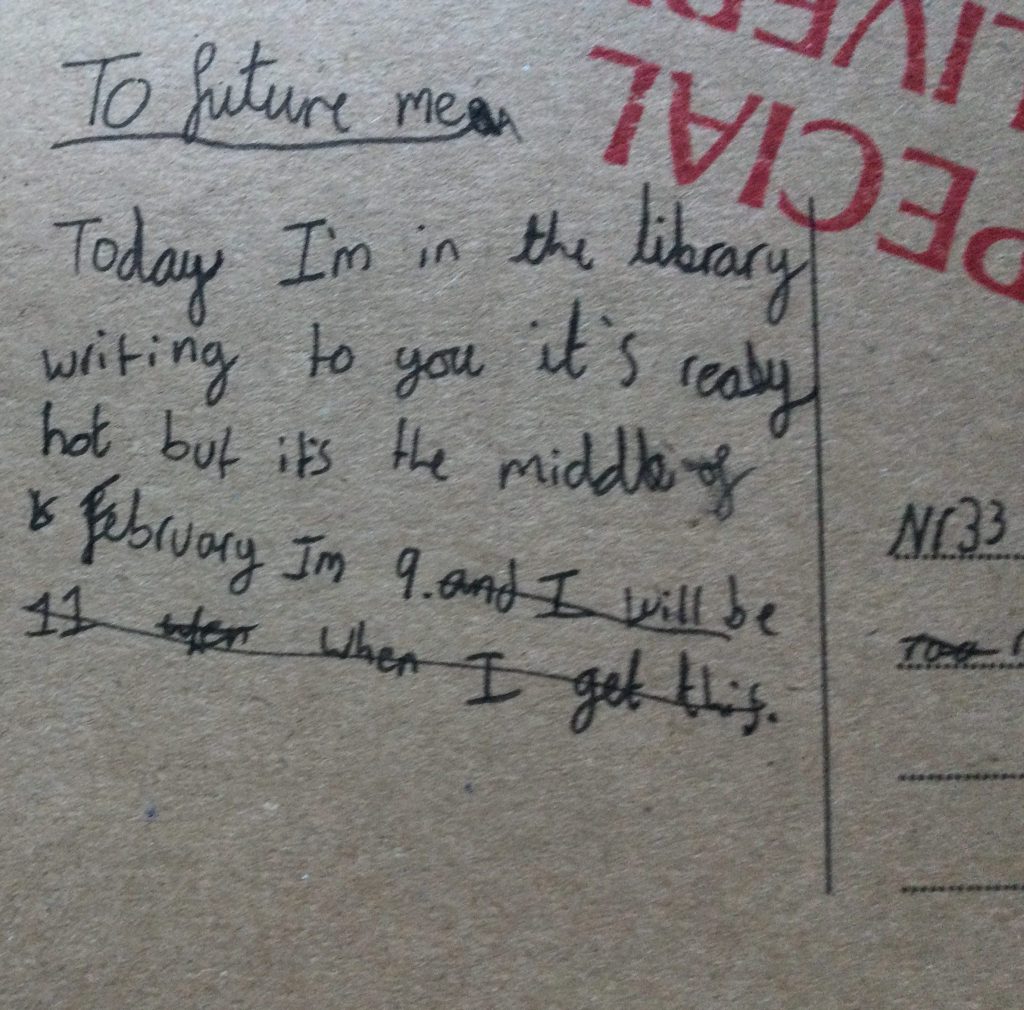 To future me
Today I'm in the library
writing to you it's really
hot but it's the middle of
February Im 9. and I will be
11 when I get this.
SPECIAL
DELIVERY
Nr33